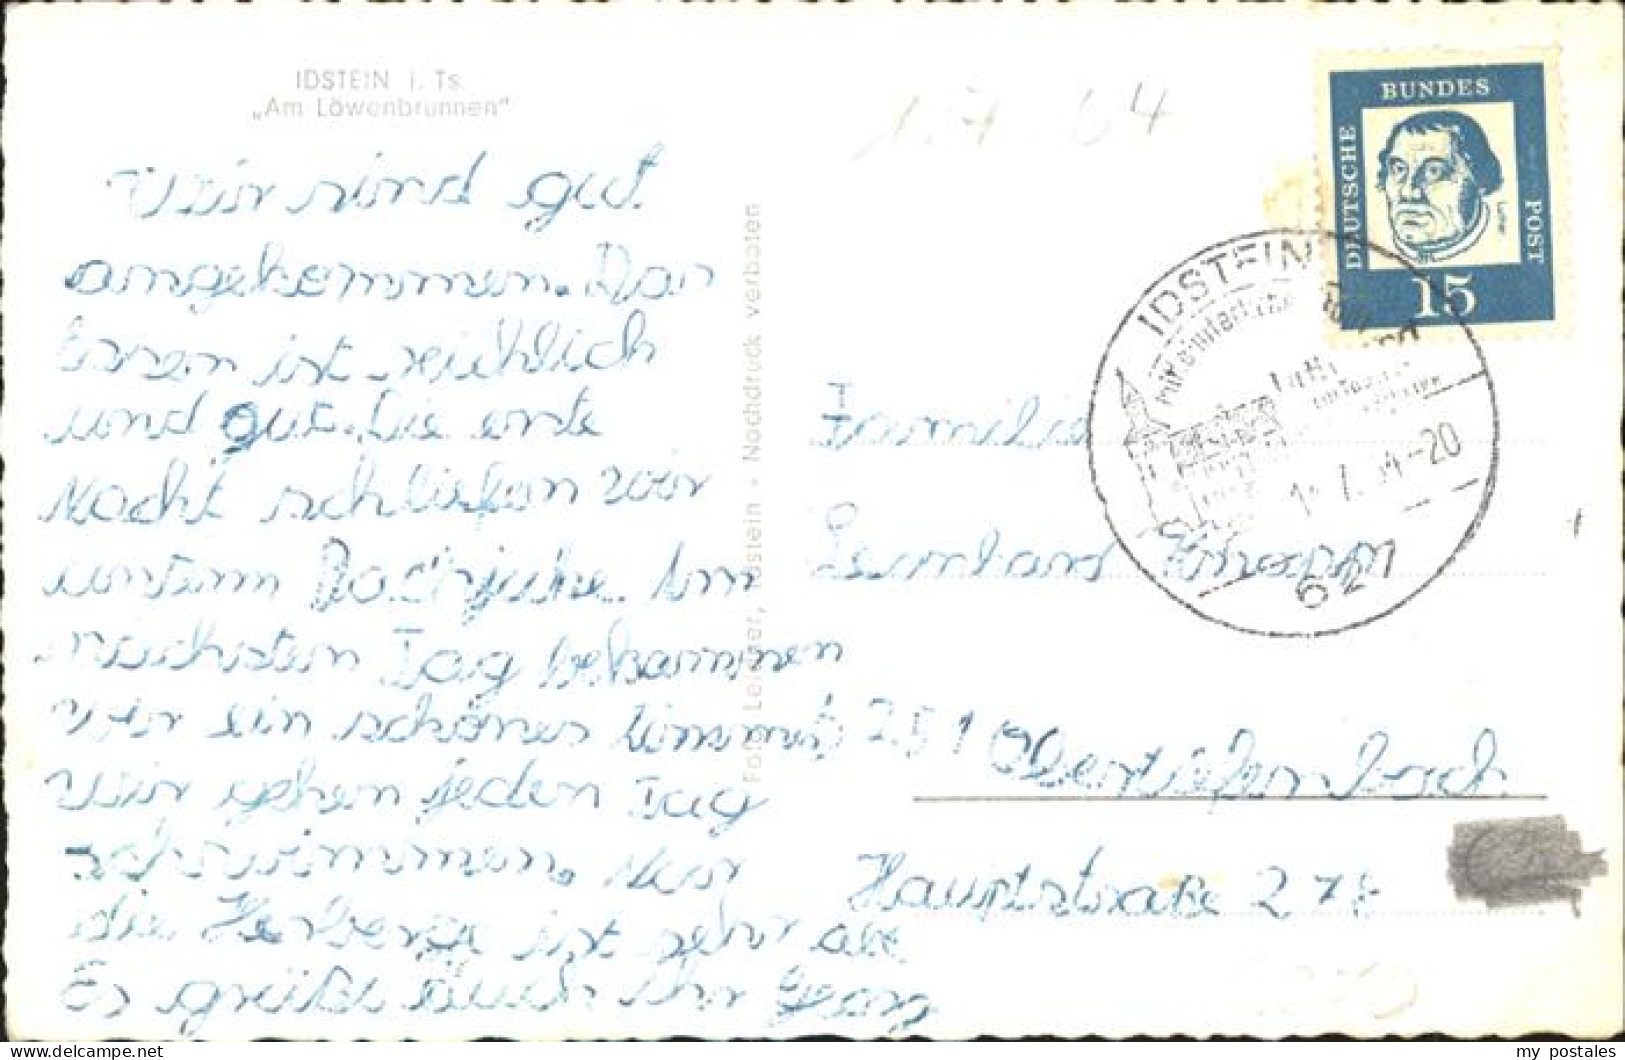 IDSTEIN i. Ts.
„Am Löwenbrunnen"
1.7.64
Wir sind gut
angekommen. Das
Essen ist reichlich
und gut. Die erste
Nacht schliefen wir
unterm Dach
Am
nächsten Tag bekammen
wir ein schönes Zimmer
Wir gehen jeden Tag
schwimmen. Nur
die Herberge ist sehr alt
Es grüßt Euch ihr Georg
Foto Leidner, Idstein - Nachdruck verboten
DEUTSCHE
BUNDES
POST
Luther
15
IDSTEIN
mit
20
627
Familie
Leonhard Knapp
6251 Obertiefenbach
Hauptstraße 27
my postales